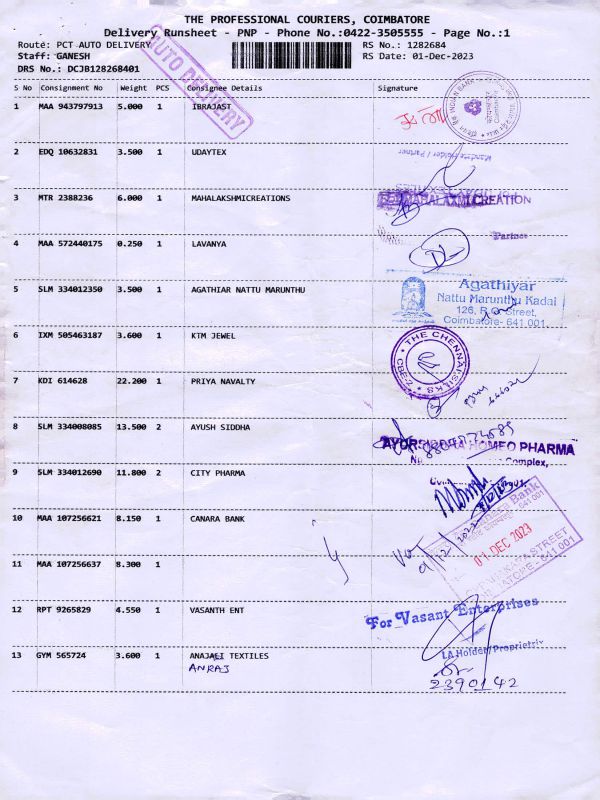 THE PROFESSIONAL COURIERS, COIMBATORE
Delivery Runsheet - PNP - Phone No.:0422-3505555 - Page No.:1
Route: PCT AUTO DELIVERY RS No.: 1282684
Staff: GANESH RS Date: 01-Dec-2023
DRS No.: DCJB128268401
AUTO DELIVERY
S No Consignment No Weight PCS Consignee Details Signature
1 MAA 943797913 5.000 1 IBRAJAST
INDIAN BANK
2 EDQ 10632831 3.500 1 UDAYTEX
Mandate Holder / Partner
3 MTR 2388236 6.000 1 MAHALAKSHMICREATIONS
MAHALAXMI CREATION
Partner
4 MAA 572440175 0.250 1 LAVANYA
5 SLM 334012350 3.500 1 AGATHIAR NATTU MARUNTHU
Agathiyar
Nattu Marunthu Kadai
126, Street,
Coimbatore- 641 001
6 IXM 505463187 3.600 1 KTM JEWEL
THE CHENNAI SILKS
CBE-2
7 KDI 614628 22.200 1 PRIYA NAVALTY
8 SLM 334008085 13.500 2 AYUSH SIDDHA
HOMEO PHARMA
Complex,
9 SLM 334012690 11.800 2 CITY PHARMA
10 MAA 107256621 8.150 1 CANARA BANK
Bank
641 001
01 DEC 2023
STREET
641 001
11 MAA 107256637 8.300 1
12 RPT 9265829 4.550 1 VASANTH ENT
For Vasant Enterprises
Holder/Proprietrix
13 GYM 565724 3.600 1 ANAJALI TEXTILES
ANRAJ
2390142